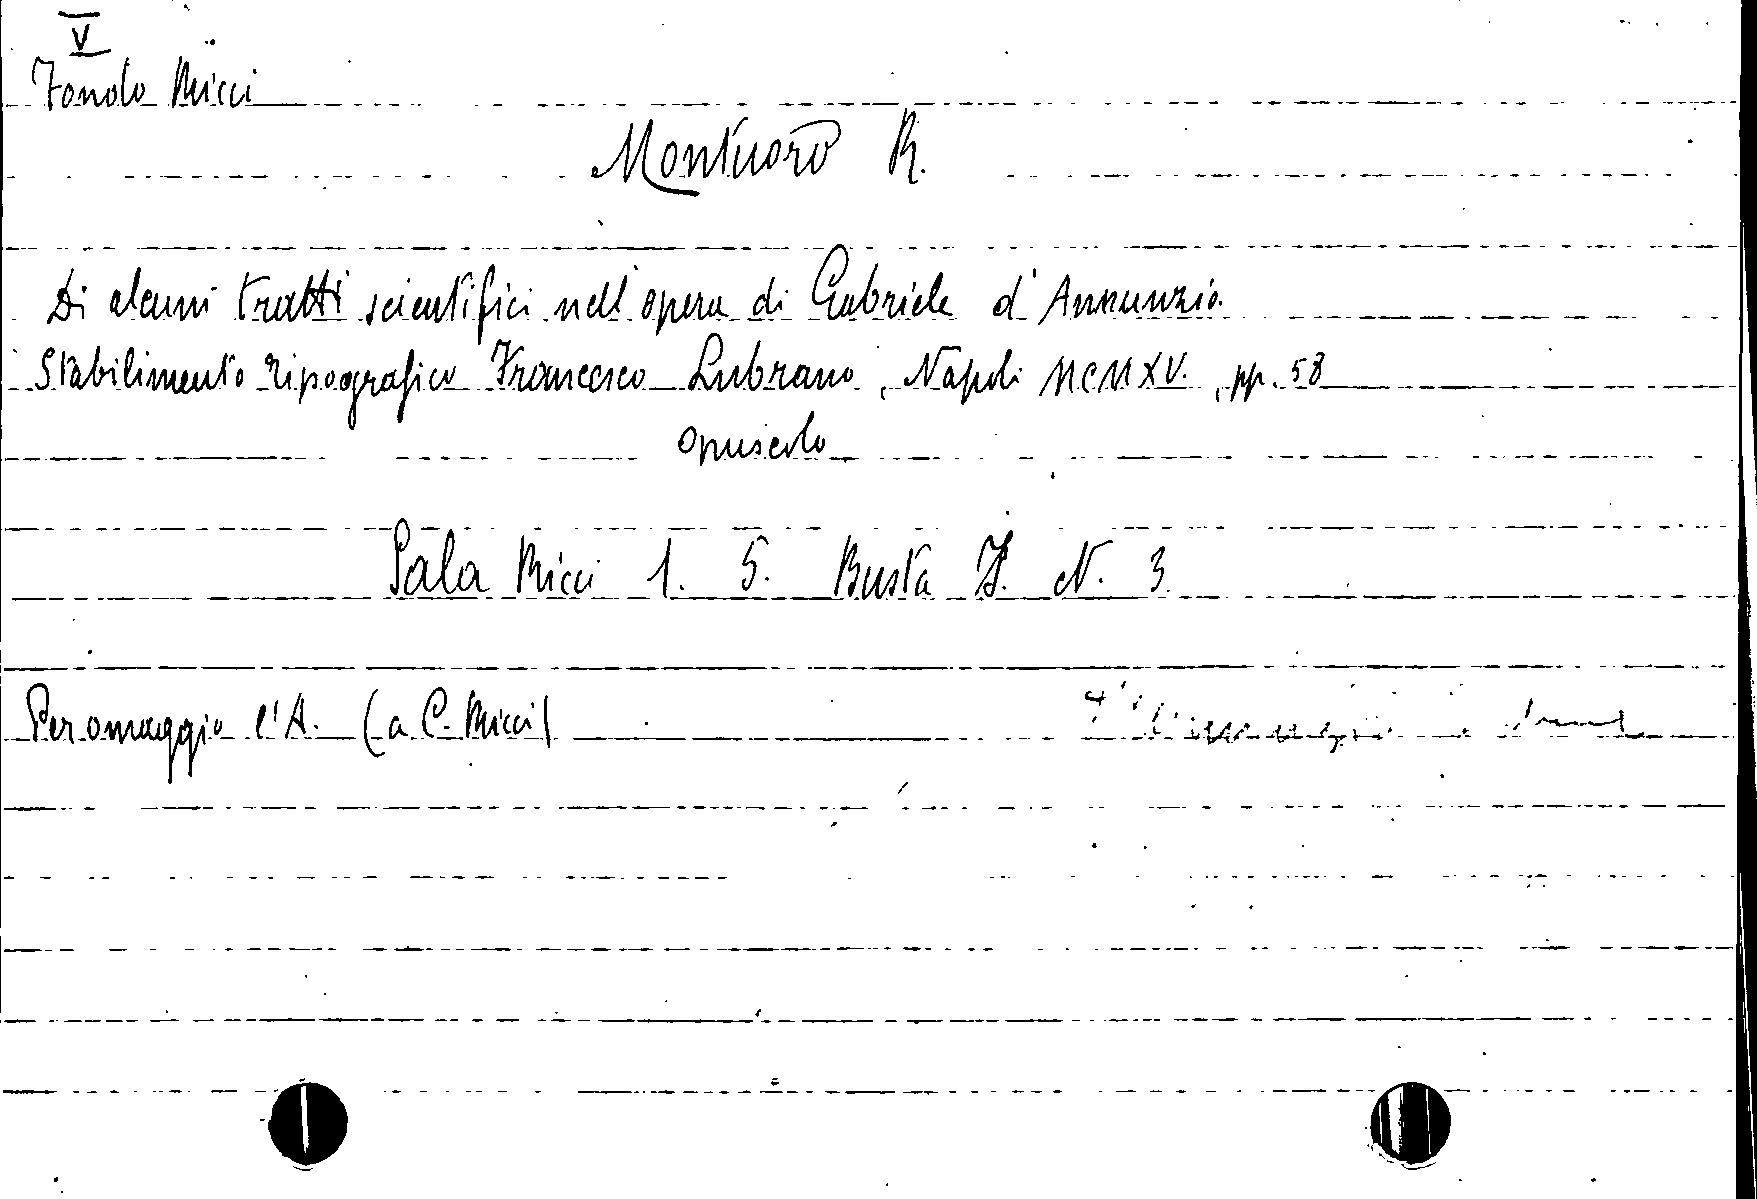 V
Fondo Ricci
Montuoro R.
Di alcuni tratti scientifici nell'opera di Gabriele d'Annunzio.
Stabilimento Tipografico Francesco Lubrano, Napoli MCMXV., pp. 58
opuscolo
Sala Ricci 1. 5. Busta I. N. 3
Per omaggio l'A. (a C. Ricci)